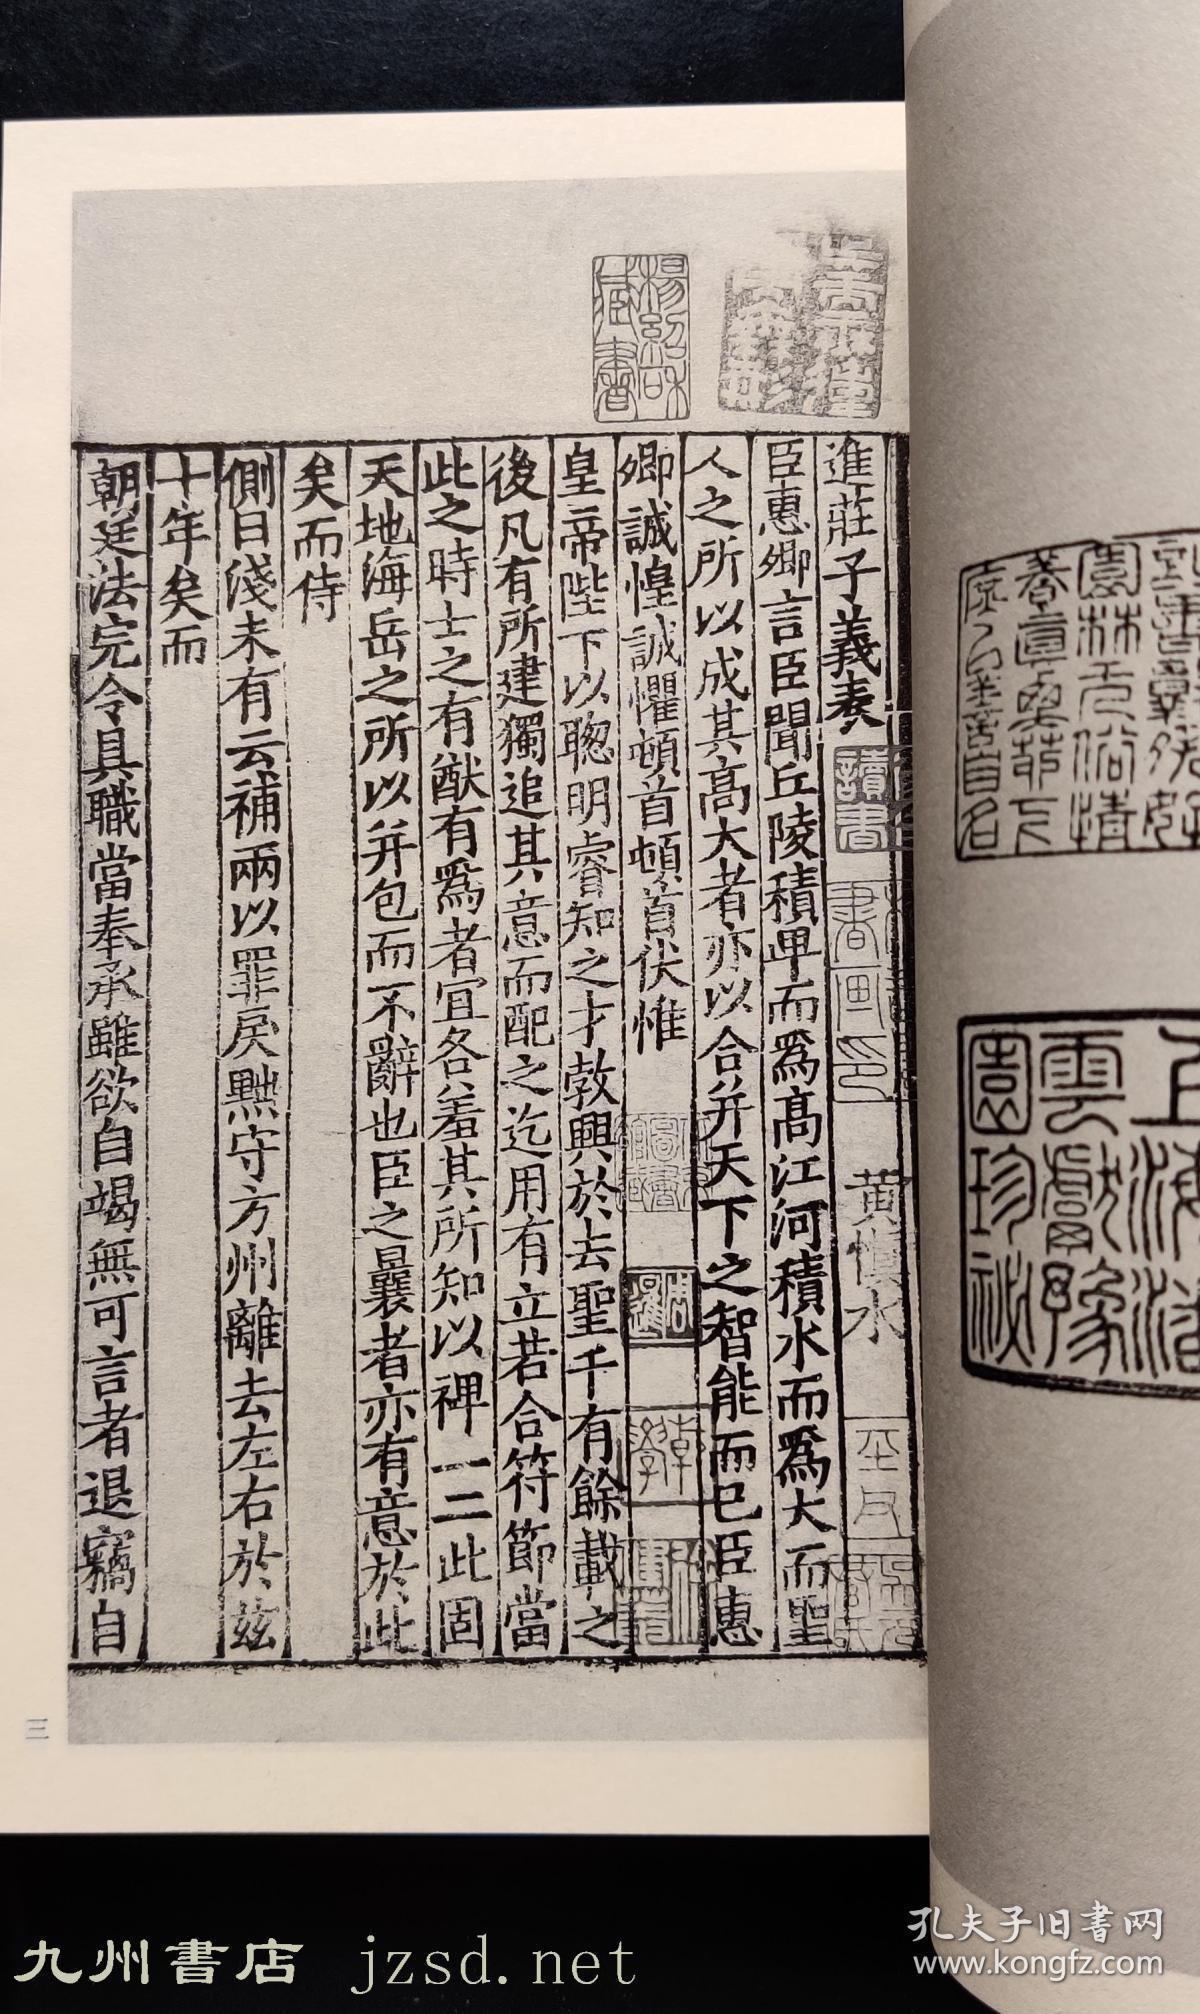 進莊子義奏
臣惠卿言臣聞丘陵積卑而爲高江河積水而爲大而聖
人之所以成其高大者亦以合并天下之智能而已臣惠
卿誠惶誠懼頓首頓首伏惟
皇帝陛下以聦明睿知之才敦興於去聖千有餘載之
後凡有所建獨追其意而配之迄用有立若合符節當
此之時士之有猷有爲者宜各羞其所知以裨一二此固
天地海岳之所以并包而不辭也臣之曩者亦有意於此
矣而侍
側日淺未有云補兩以罪戾黜守方州離去左右於兹
十年矣而
朝廷法完令具職當奉承雖欲自竭無可言者退竊自
黄慎水
讀書
書画印
楊紹和
藏書
三
園林無俗情
上海潘
雲獻豫
園珍祕
九州書店 jzsd.net
孔夫子旧書网
www.kongfz.com